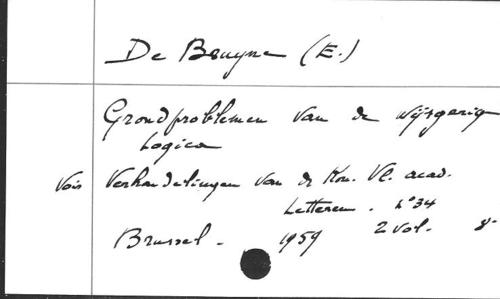 De Bruyne (E.)
Grondproblemen van de wijsgerig
Logica
Vois Verhandelingen van de Kon. Vl. acad.
Letteren. n° 34
Brussel - 1959 2 vol. 8°